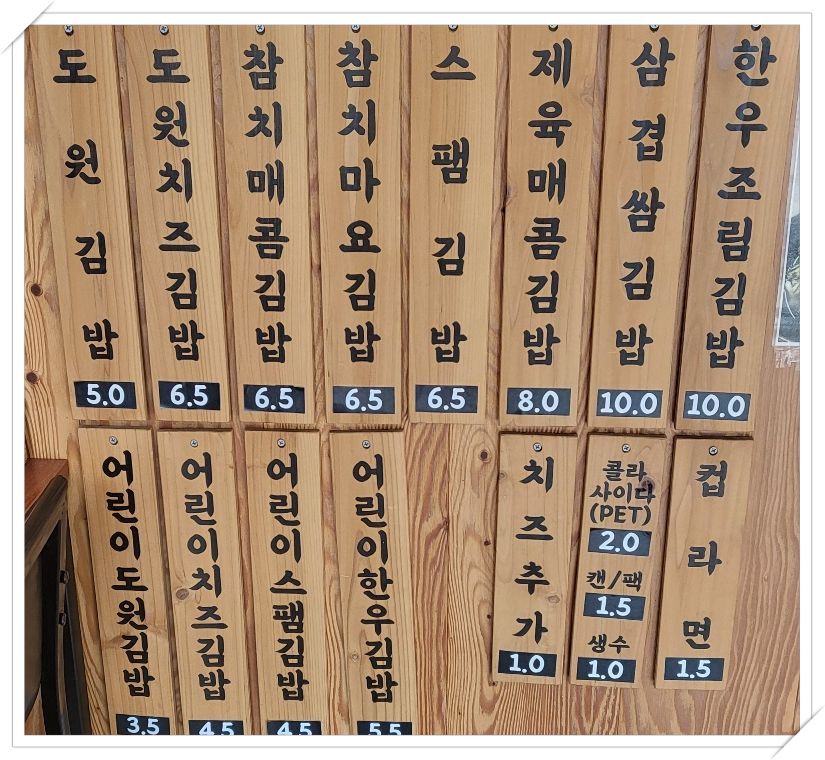 도원김밥
5.0
도원치즈김밥
6.5
참치매콤김밥
6.5
참치마요김밥
6.5
스팸김밥
6.5
제육매콤김밥
8.0
삼겹쌈김밥
10.0
한우조림김밥
10.0
어린이도원김밥
3.5
어린이치즈김밥
4.5
어린이스팸김밥
4.5
어린이한우김밥
5.5
치즈추가
1.0
콜라
사이다
(PET)
2.0
캔/팩
1.5
생수
1.0
컵라면
1.5